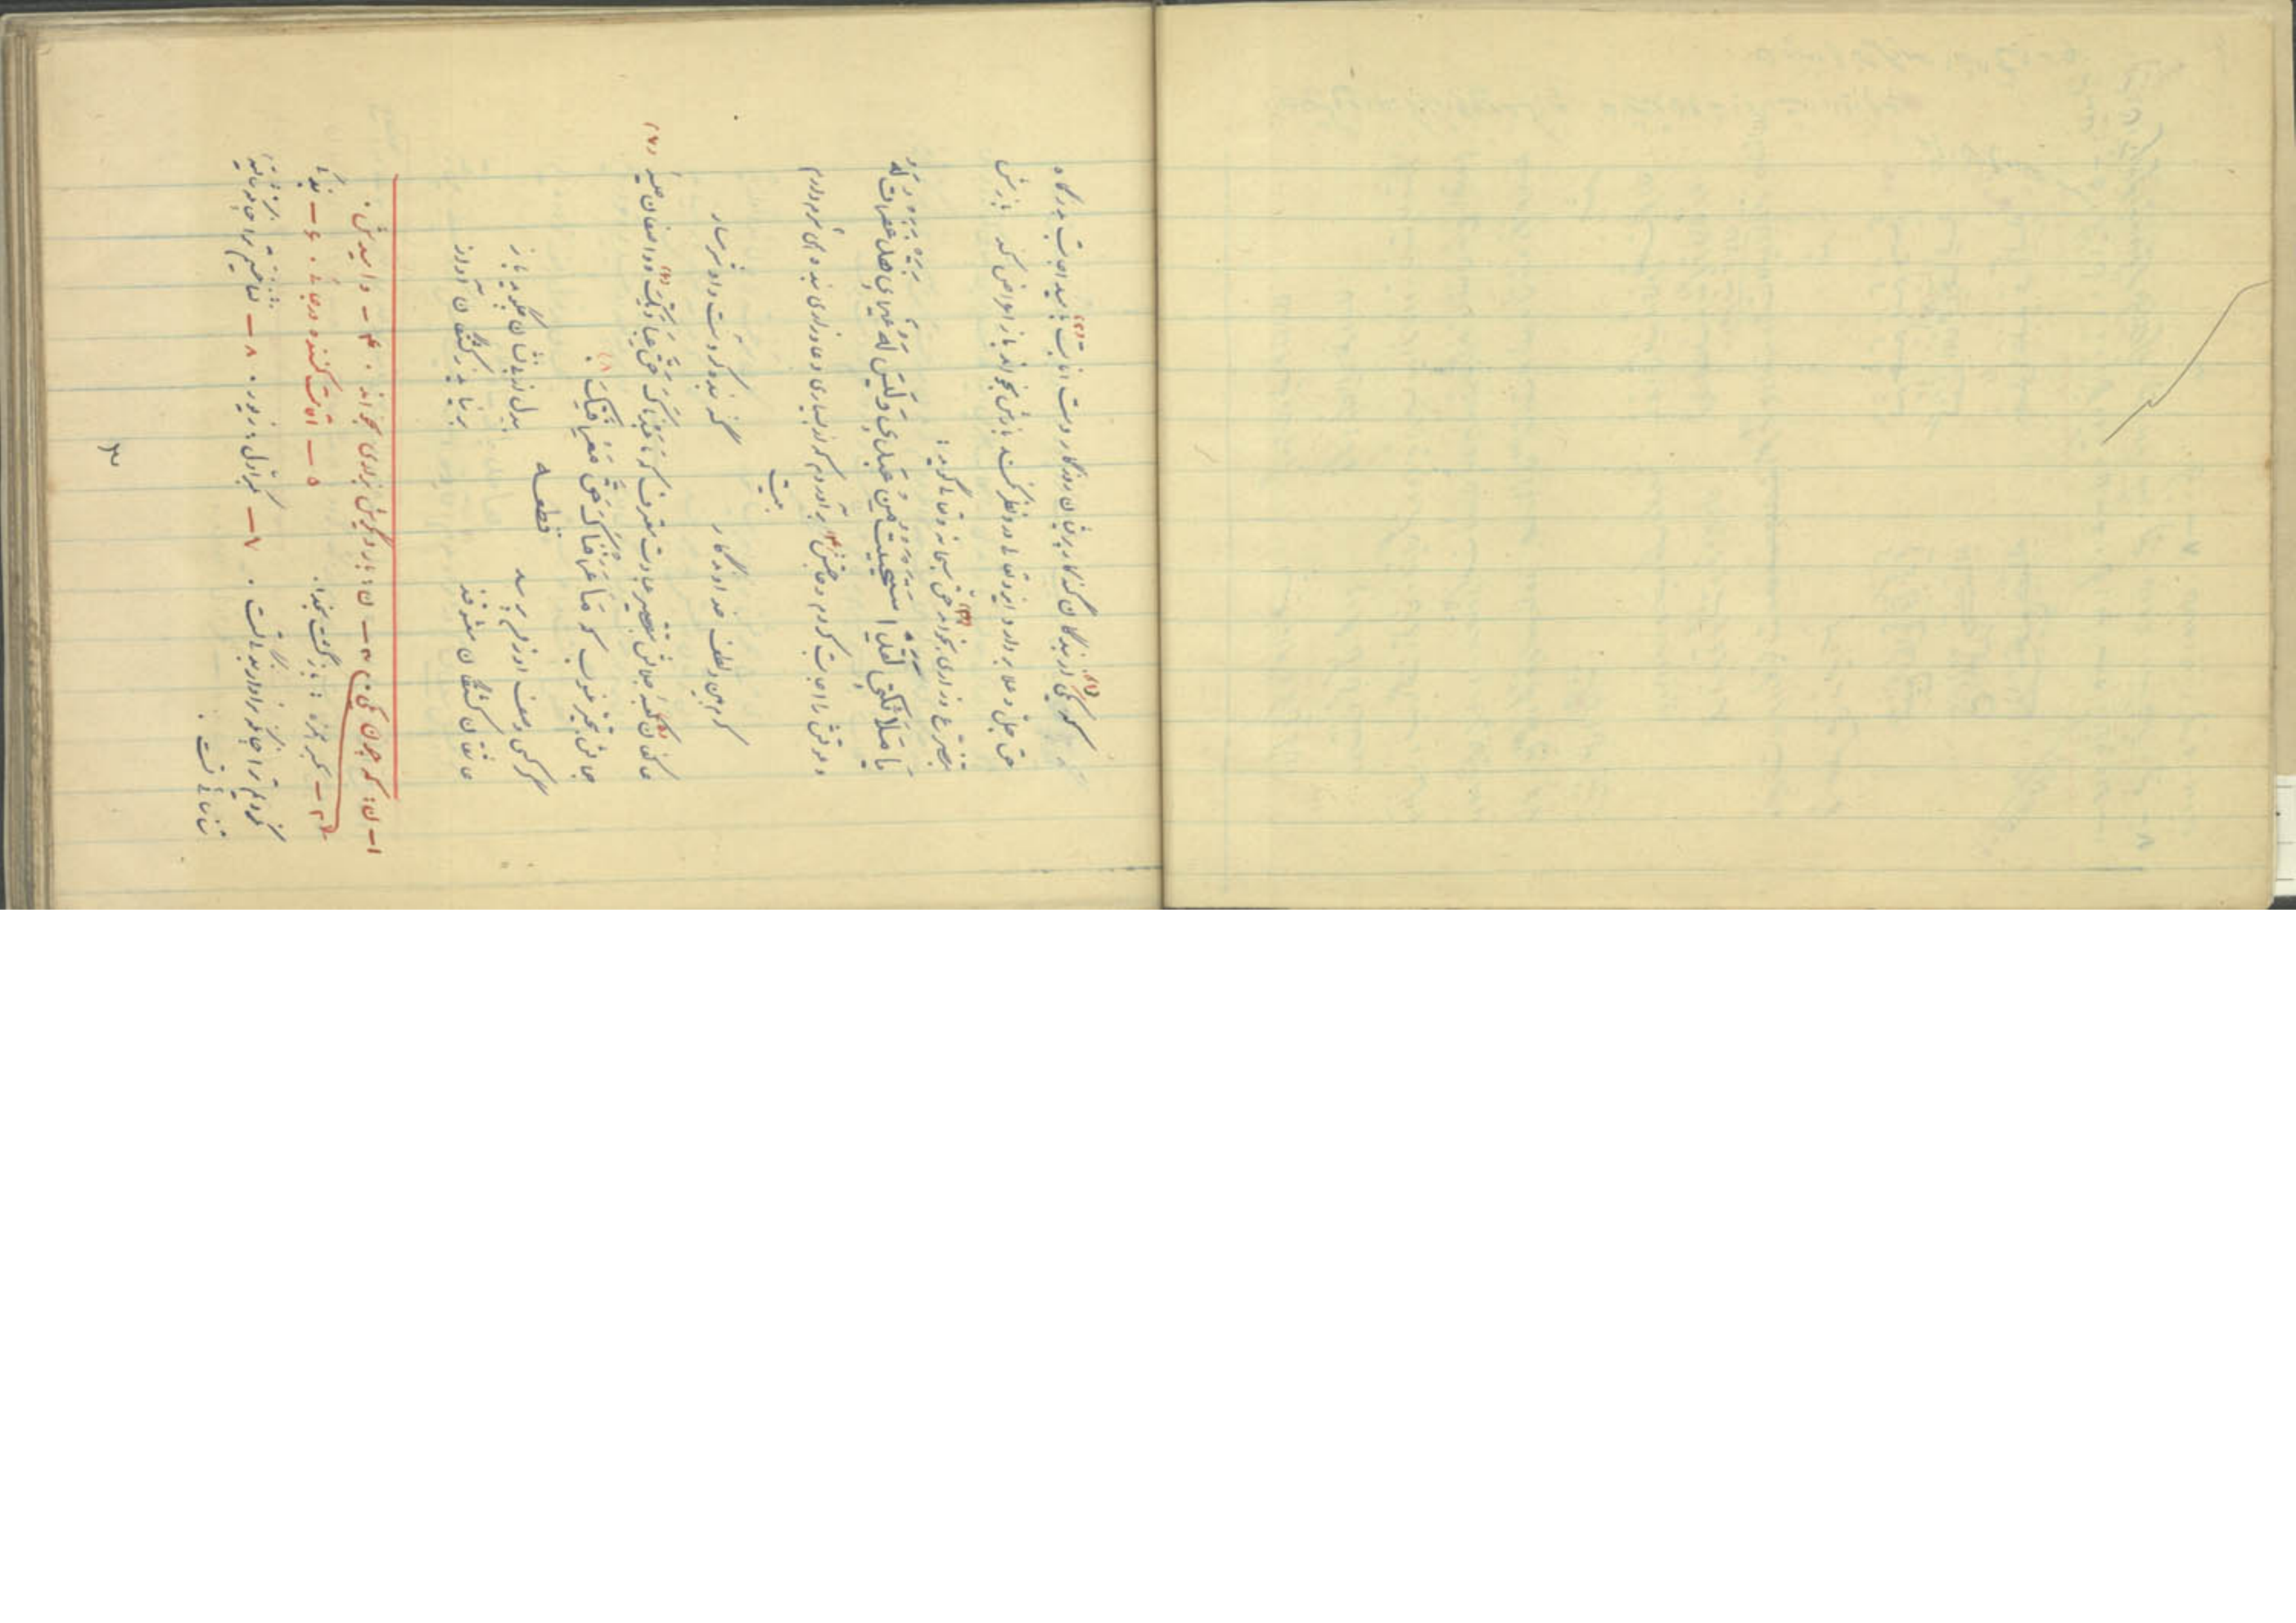 که یکی از بندگان گنه کار پریشان روزگار دست انابت بامید اجابت بدرگاه
حق جل و علا بردارد ایزد تعالی در وی نظر نکند بازش بخواند باز اعراض کند بازش
بتضرع و زاری بخواند حق سبحانه و تعالی گوید:
یا مَلائکتی لَقَد استَحیَیتُ مِن عَبدی وَ لَیسَ لَهُ غَیری فَقَد غَفَرتُ لَهُ
دعوتش را اجابت کردم و حاجتش برآوردم که از بسیاری دعا و زاری بنده همی شرم دارم
بیت
کرم بین و لطف خداوندگار گنه بنده کردست و او شرمسار
عاکفان کعبه جلالش بتقصیر عبادت معترف که ما عَبَدناکَ حَقَّ عِبادَتِک و واصفان حلیه
جمالش بتحیر منسوب که ما عَرَفناکَ حَقَّ مَعرِفَتِکَ.
قطعه
گر کسی وصف او ز من پرسد بیدل از بی نشان چگوید باز
عاشقان کشتگان معشوقند بر نیاید ز کشتگان آواز
۱ - ن: که چون یکی. ۲ - ن: بار دیگرش بزاری بخواند. ۳ - و امیدش.
۴ - بکسر همزه: بازگشت بخدا. ۵ - اقامت کننده در جائی. ۶ -
۷ - بکسر اول: زیور. ۸ -